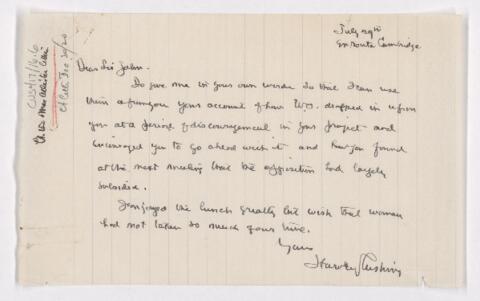 July 29th
En route Cambridge
Dear Sir John.
Do give me in your own words so that I can use
them afterwards your account of how W.O. dropped in upon
you at a period of discouragement in your project and
encouraged you to go ahead with it and how you found
at the next meeting that the opposition had largely
subsided.
I enjoyed the lunch greatly but wish that woman
had not taken so much of your time.
Yours
Harvey Cushing
CUS417/16.16